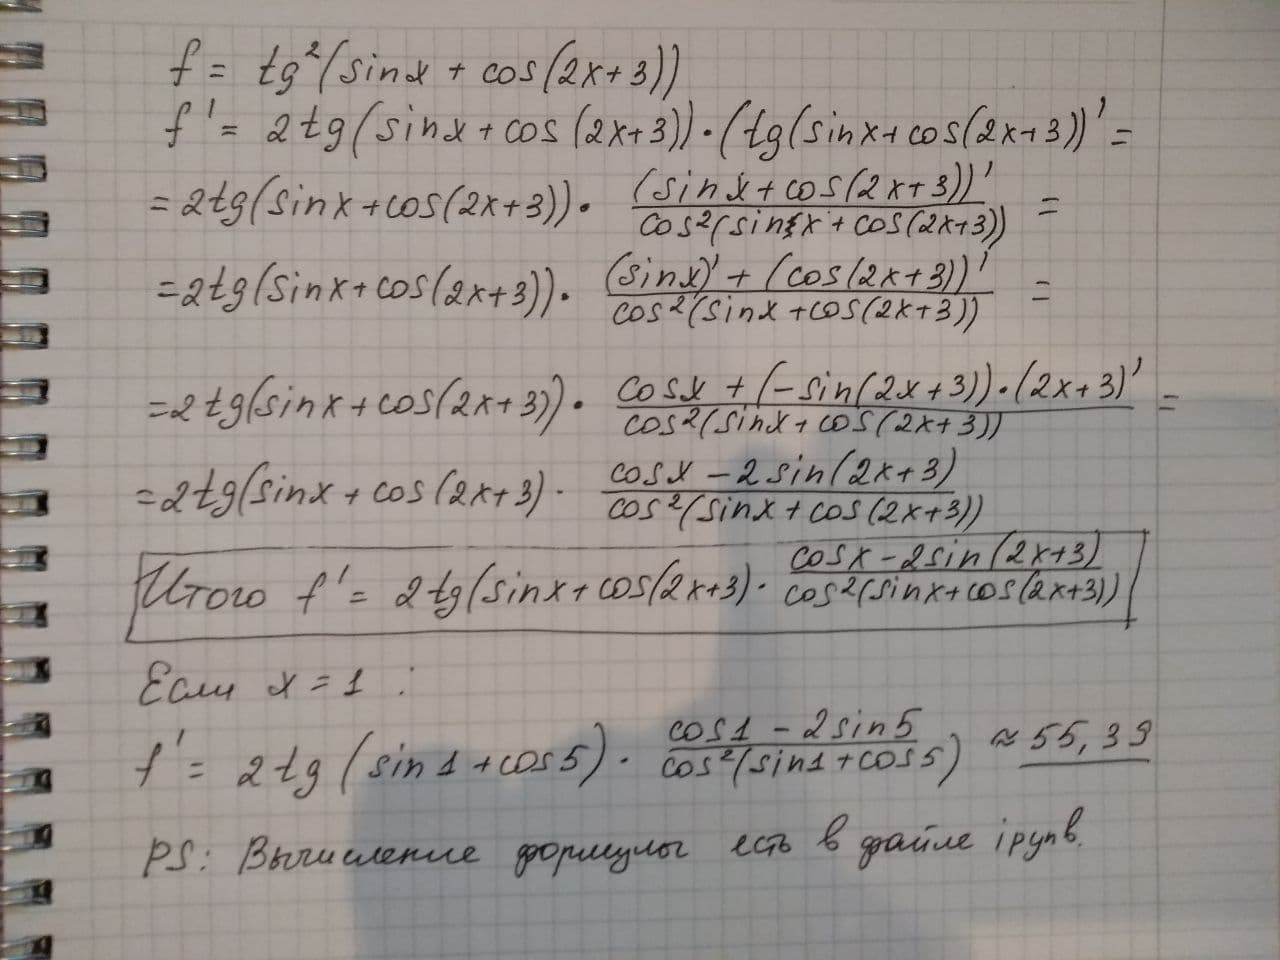 f = tg²(sinx + cos(2x+3))
f' = 2tg(sinx+cos(2x+3))·(tg(sinx+cos(2x+3))' =
= 2tg(sinx+cos(2x+3))· (sinx+cos(2x+3))' / cos²(sinx+cos(2x+3)) =
= 2tg(sinx+cos(2x+3))· (sinx)' + (cos(2x+3))' / cos²(sinx+cos(2x+3)) =
= 2tg(sinx+cos(2x+3))· cosx + (-sin(2x+3))·(2x+3)' / cos²(sinx+cos(2x+3)) =
= 2tg(sinx+cos(2x+3)· cosx - 2sin(2x+3) / cos²(sinx+cos(2x+3))
Итого f' = 2tg(sinx+cos(2x+3)· cosx-2sin(2x+3) / cos²(sinx+cos(2x+3))
Если x = 1 :
f' = 2tg(sin1+cos5)· cos1 - 2sin5 / cos²(sin1+cos5) ≈ 55,39
PS: Вычисление формулы есть в файле ipynb.